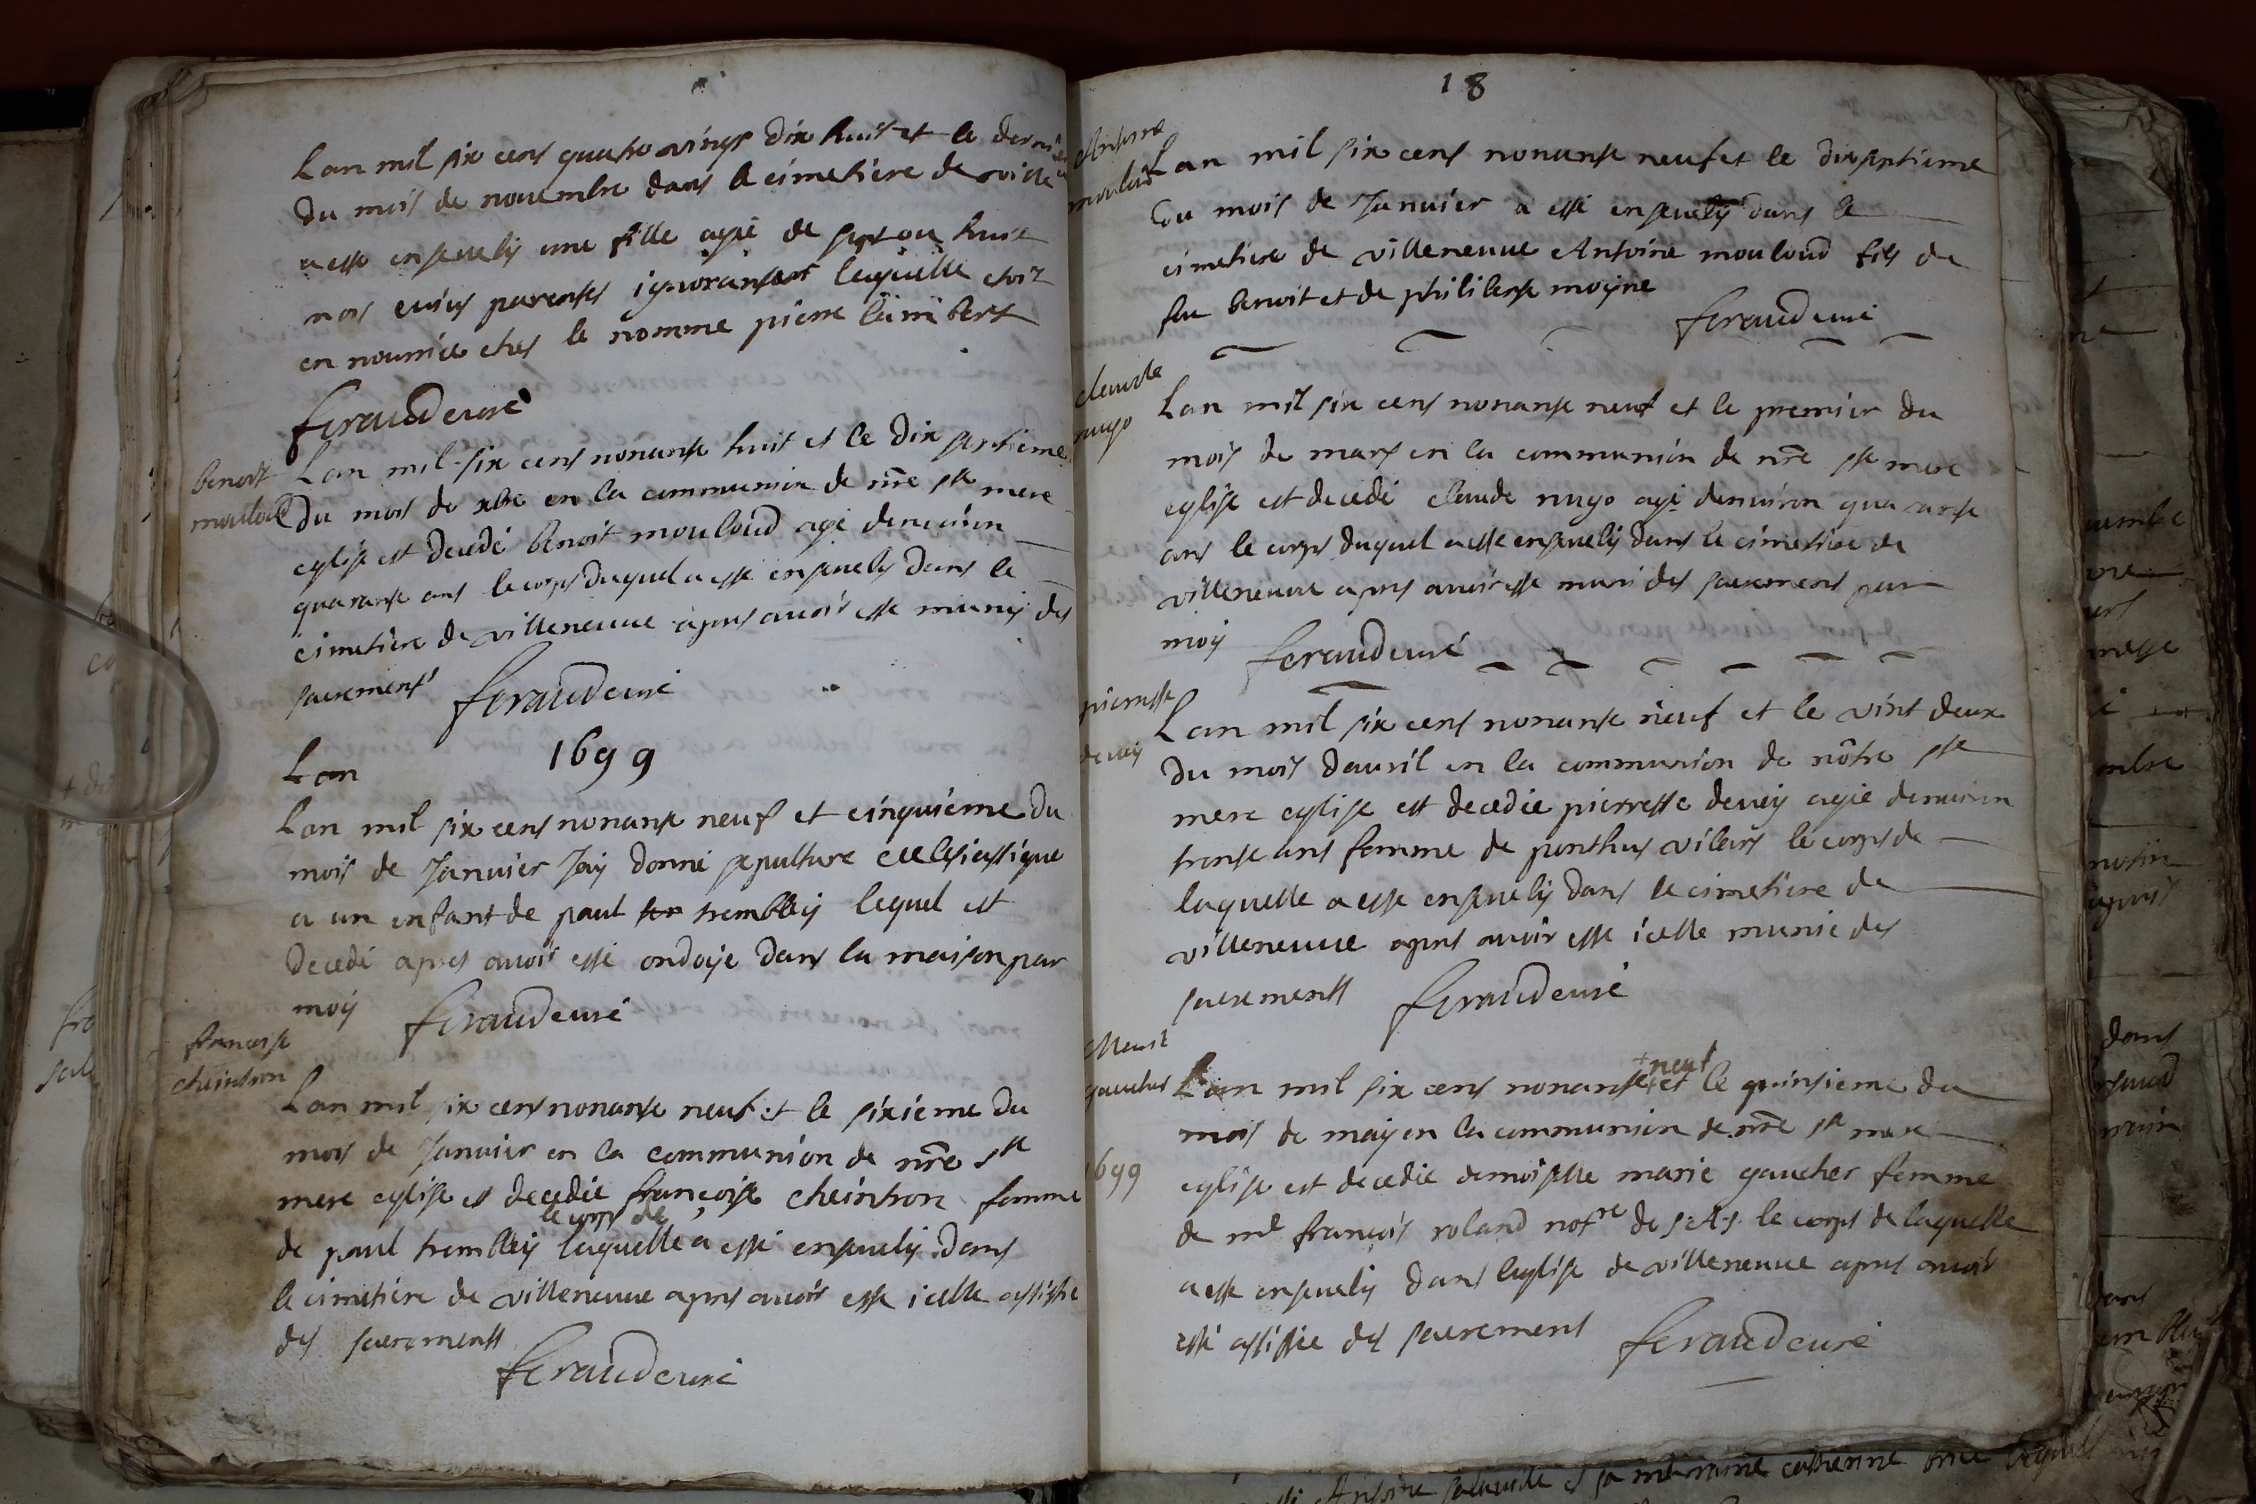 Lan mil six cens quatre vings dix huit et le dernier
du mois de novembre dans le cimetiere de ville
a esté ensevely une fille agie de sept ou huit
mois cuius parentes ignorantur laquelle etoit
en nourrice ches le nomme pierre lambert
feraud curé
benoit
mouloud
Lan mil six cens nonante huit et le dix septieme
du mois de xbre en la communion de nre ste mere
eglise est decedé benoit mouloud agé denviron
quarante ans le corps duquel a esté ensevely dans le
cimetiere de villeneuve apres avoir esté muny des
sacrements feraud curé
1699
Lan
Lan mil six cens nonante neuf et cinquieme du
mois de Janvier Jay donné sepulture ecclesiastique
a un enfant de paul trembley lequel est
decedé apres avoir esté ondoye dans la maison par
moy feraud curé
francoise
cheintron
Lan mil six cens nonante neuf et le sixieme du
mois de Janvier en la communion de nre ste
mere eglise est decedie françoise cheintron femme
le corps de
de paul trembley laquelle a esté ensevely dans
le cimetiere de villeneuve apres avoir esté icelle assistée
des sacrements
feraud curé
18
Antoine
mouloud
Lan mil six cens nonante neuf et le dixseptieme
du mois de Janvier a esté ensevely dans le
cimetiere de villeneuve Antoine mouloud fils de
feu benoit et de philiberte moyne
feraud curé
claude
nugo
Lan mil six cens nonante neuf et le premier du
mois de mars en la communion de nre ste mere
eglise est decedé claude nugo agé denviron quarante
ans le corps duquel a esté ensevely dans le cimetiere de
villeneuve apres avoir esté muni des sacrements par
moy feraud curé
pierrette
devey
Lan mil six cens nonante neuf et le vint deux
du mois davril en la communion de nôtre ste
mere eglise est decedie pierrette devey agie denviron
trente ans femme de ponthus vilers le corps de
laquelle a esté ensevely dans le cimetiere de
villeneuve apres avoir esté icelle munie des
sacrements feraud curé
gaucher
1699
+ neuf
Lan mil six cens nonante + et le quinsieme du
mois de may en la communion de nre ste mere
eglise est decedie demoiselle marie gaucher femme
de me françois roland notre de S.A.S. le corps de laquelle
a esté ensevely dans leglise de villeneuve apres avoir
esté assistée des sacrements feraud curé